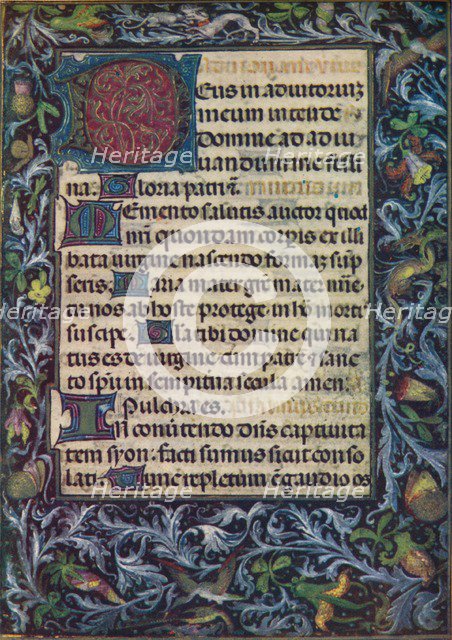 Deus in adiutoriuz
meum intende
Domine ad adiu
uandum me festi
na: Gloria patri
Memento salutis auctor quod
nr̄i quondam corpis ex illi
bata uirgine nascendo formaz sup
seris Maria mater gr̄e mater mīe
tu nos ab hoste protege in h morti
suscipe Gloria tibi domine qui na
tus es de uirgine cum patre sancto
sp̄u in sempitna secula amen
Pulchra es.
In conutendo dn̄s captiuita
tem syon: facti sumus sicut conso
lati Tunc repletum ē gaudio os
Heritage
Heritage
Heritage
Heritage
Heritage
Heritage
Heritage
Heritage
C